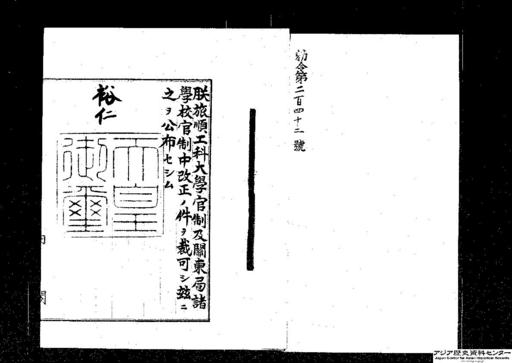 勅令第二百四十二號
朕旅順工科大學官制及關東局諸
學校官制中改正ノ件ヲ裁可シ茲ニ
之ヲ公布セシム
裕仁
天皇
御璽
内閣
アジア歴史資料センター
Japan Center for Asian Historical Records